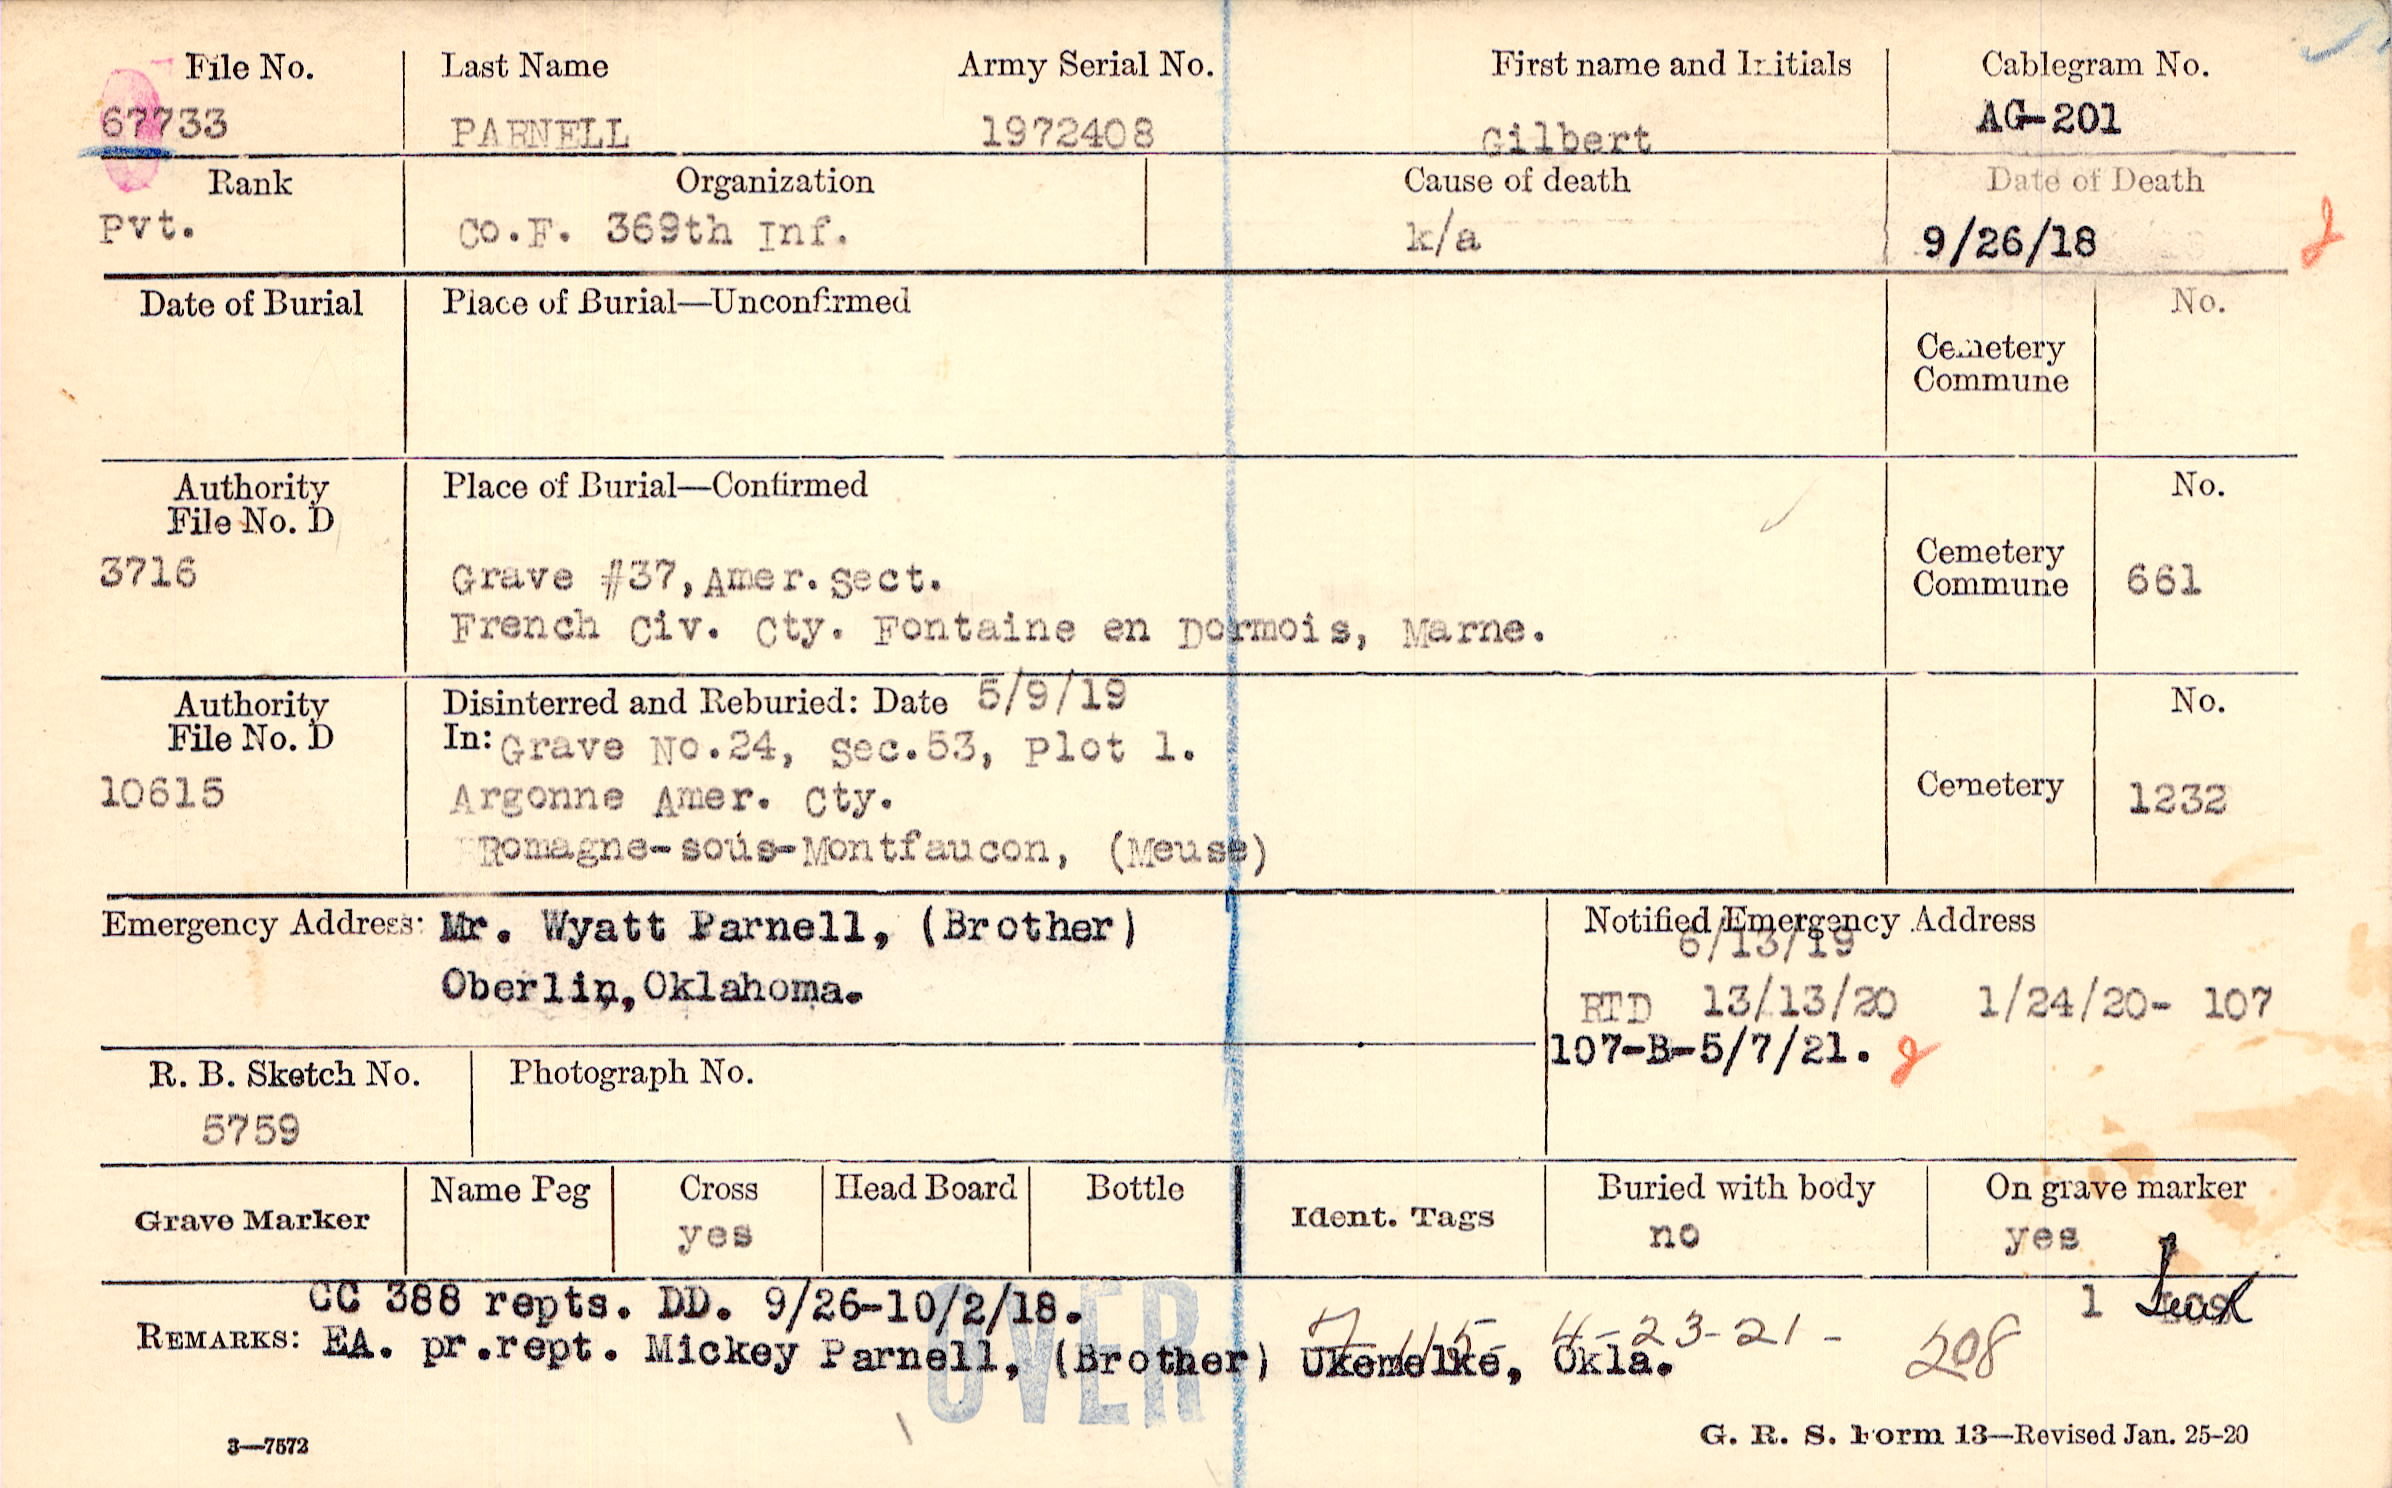 File No. Last Name Army Serial No. First name and Initials Cablegram No.
67733 PARNELL 1972408 Gilbert AG-201
Rank Organization Cause of death Date of Death
Pvt. Co.F. 369th Inf. k/a 9/26/18
Date of Burial Place of Burial—Unconfirmed No.
Cemetery
Commune
Authority Place of Burial—Confirmed No.
File No. D
3716 Grave #37,Amer.Sect. Cemetery
Commune 661
French Civ. Cty. Fontaine en Dormois, Marne.
Authority Disinterred and Reburied: Date 5/9/19 No.
File No. D In: Grave No.24, Sec.53, Plot 1.
10615 Argonne Amer. Cty. Cemetery 1232
Romagne-sous-Montfaucon, (Meuse)
Emergency Address: Mr. Wyatt Parnell, (Brother) Notified Emergency Address
6/13/19
Oberlin,Oklahoma. RTD 13/13/20 1/24/20- 107
107-B-5/7/21.
R. B. Sketch No. Photograph No.
5759
Grave Marker Name Peg Cross Head Board Bottle Ident. Tags Buried with body On grave marker
yes no yes
CC 388 repts. DD. 9/26-10/2/18. 1
4-23-21- 208
REMARKS: EA. pr.rept. Mickey Parnell, (Brother) Ukemelke, Okla.
OVER
3—7572 G. R. S. Form 13—Revised Jan. 25-20